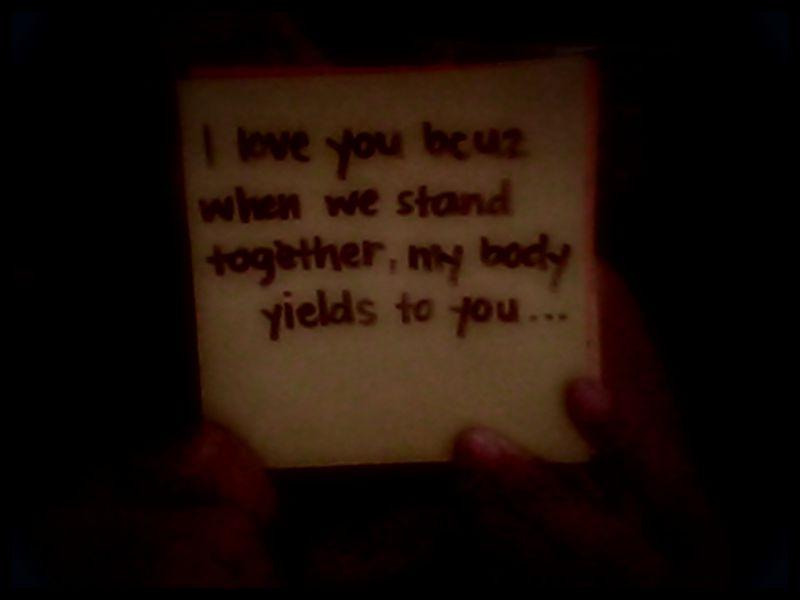 I love you bcuz
when we stand
together, my body
yields to you...